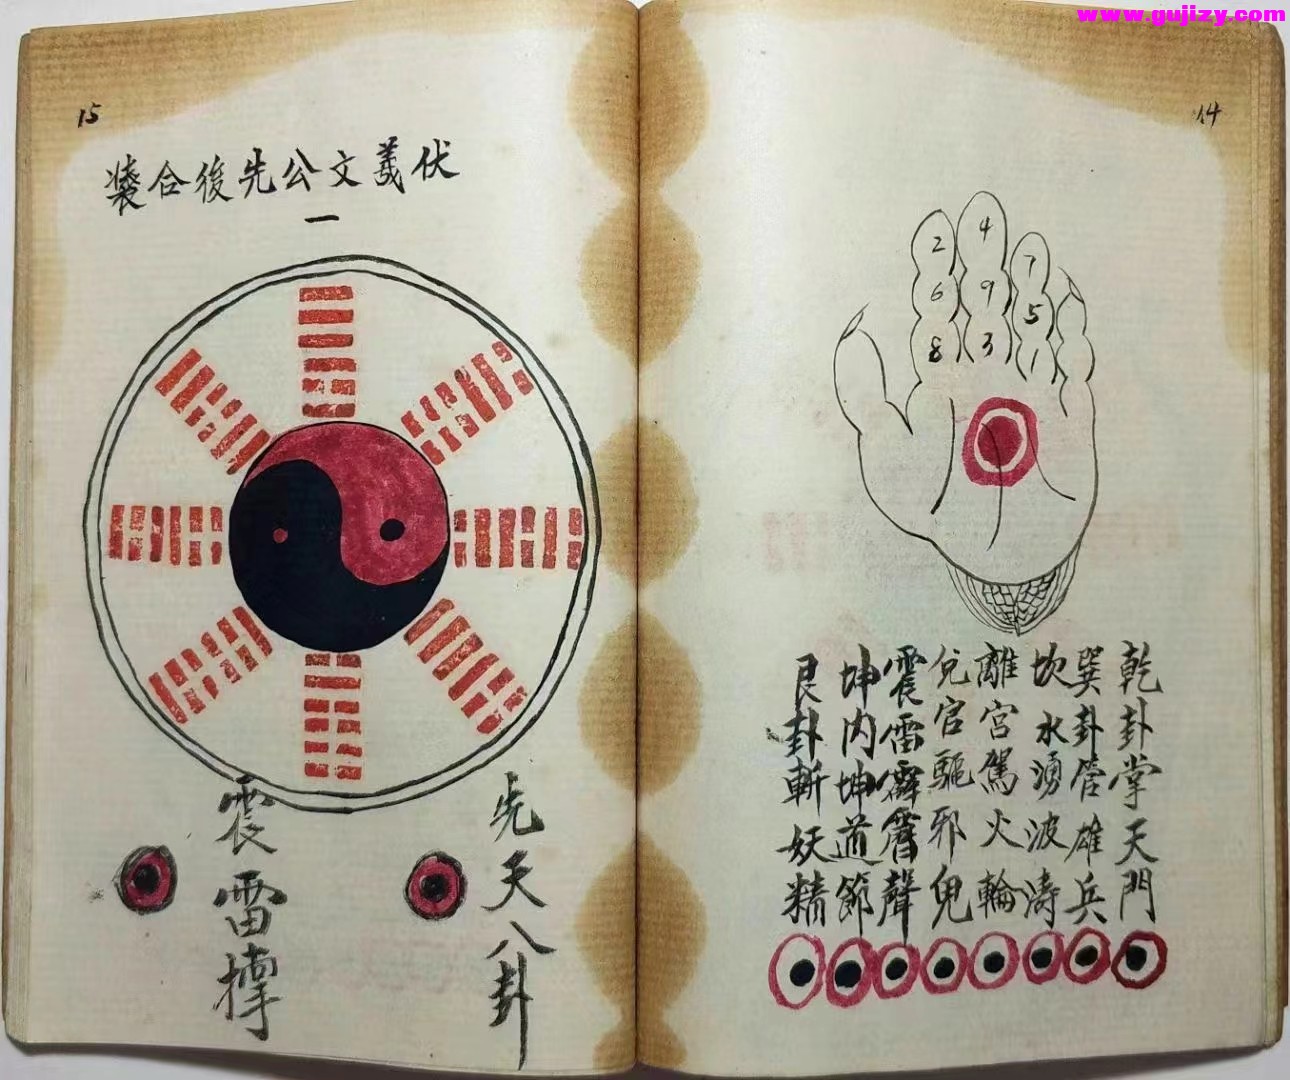 www.gujizy.com
14
2 4 7
6 9 5
8 3 1
乾卦掌天門
巽卦管雄兵
坎水湧波濤
離宮駕火輪
兌宮驅邪鬼
震雷霹靂聲
坤內坤道節
艮卦斬妖精
15
伏羲文公先後合裝
一
先天八卦
震雷